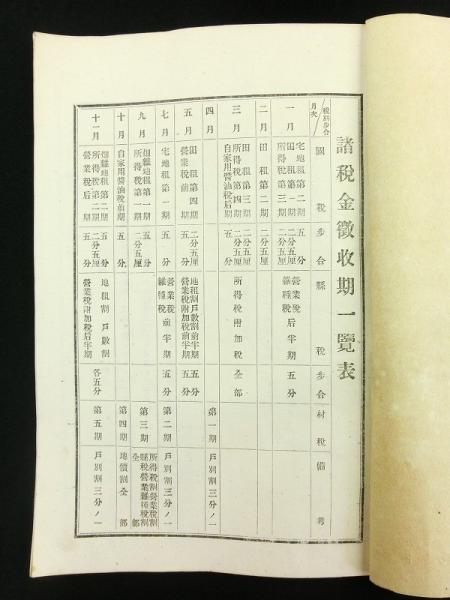 諸税金徴收期一覽表
税別歩合
月次
國税
歩合
縣税
歩合
村税
備考
一月
宅地租第二期 五分
田租第一期 二分五厘
所得税第三期 二分五厘
營業税后半期 五分
雜種税
二月
田租第二期 二分五厘
三月
田租第三期 二分五厘
所得税第四期 二分五厘
自家用醬油税后期 五分
所得税附加税 全部
四月
第一期 戸別割三分ノ一
五月
田租第四期 二分五厘
營業税前期 五分
地租割戸數割前半期
營業税附加税前半期 五分
七月
宅地租第一期 五分
營業税前半期 五分
雜種税
第二期 戸別割三分ノ一
九月
畑雜地租第一期 五分
所得税第一期 二分五厘
第三期
所得税割營業税割
縣税營業雜種税割
全部
十月
自家用醬油税前期 五分
第四期 地價割全部
十一月
畑雜地租第二期 五分
所得税第二期 二分五厘
營業税后期 五分
地租割戸數割
營業税附加税后半期 各五分
第五期 戸別割三分ノ一